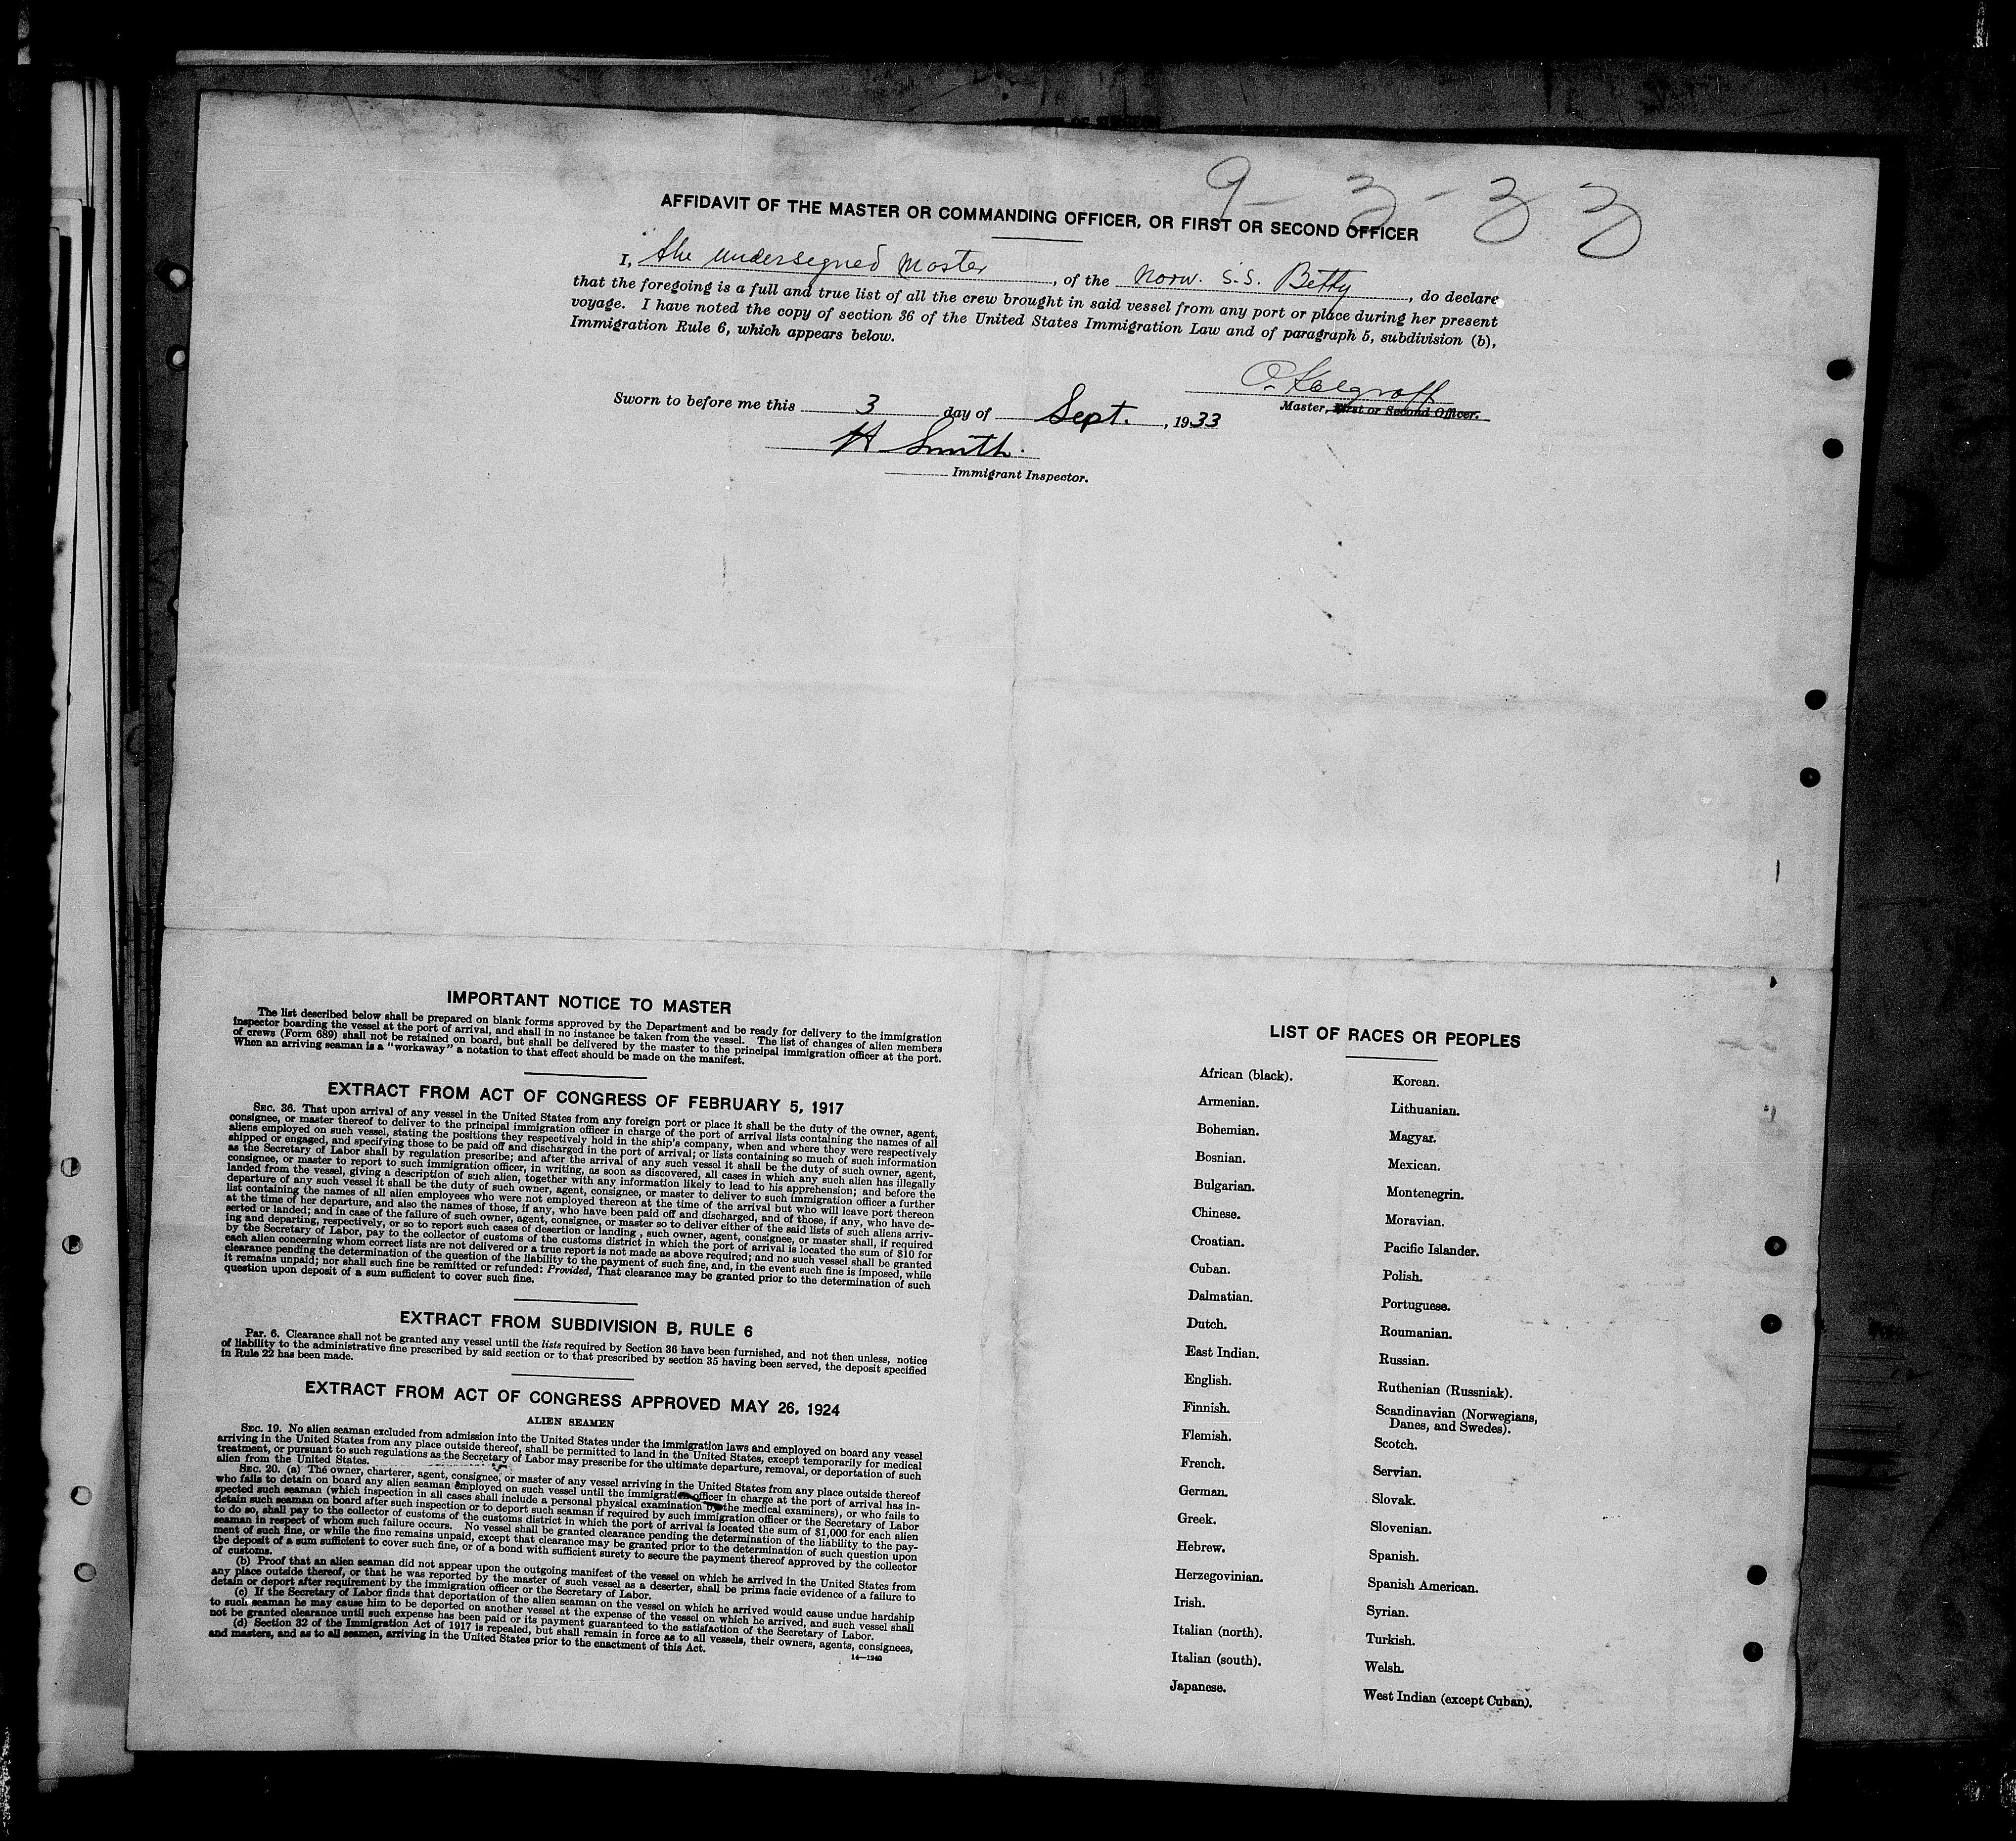 9-3-33
AFFIDAVIT OF THE MASTER OR COMMANDING OFFICER, OR FIRST OR SECOND OFFICER
I, the undersigned Master, of the Norw. S.S. Betty, do declare
that the foregoing is a full and true list of all the crew brought in said vessel from any port or place during her present
voyage. I have noted the copy of section 36 of the United States Immigration Law and of paragraph 5, subdivision (b),
Immigration Rule 6, which appears below.
Master, First or Second Officer.
Sworn to before me this 3 day of Sept., 1933
H Smith.
Immigrant Inspector.
IMPORTANT NOTICE TO MASTER
The list described below shall be prepared on blank forms approved by the Department and be ready for delivery to the immigration
inspector boarding the vessel at the port of arrival, and shall in no instance be taken from the vessel. The list of changes of alien members
of crews (Form 689) shall not be retained on board, but shall be delivered by the master to the principal immigration officer at the port.
When an arriving seaman is a "workaway" a notation to that effect should be made on the manifest.
EXTRACT FROM ACT OF CONGRESS OF FEBRUARY 5, 1917
SEC. 36. That upon arrival of any vessel in the United States from any foreign port or place it shall be the duty of the owner, agent,
consignee, or master thereof to deliver to the principal immigration officer in charge of the port of arrival lists containing the names of all
aliens employed on such vessel, stating the positions they respectively hold in the ship's company, when and where they were respectively
shipped or engaged, and specifying those to be paid off and discharged in the port of arrival; or lists containing so much of such information
as the Secretary of Labor shall by regulation prescribe; and after the arrival of any such vessel it shall be the duty of such owner, agent,
consignee, or master to report to such immigration officer, in writing, as soon as discovered, all cases in which any such alien has illegally
landed from the vessel, giving a description of such alien, together with any information likely to lead to his apprehension; and before the
departure of any such vessel it shall be the duty of such owner, agent, consignee, or master to deliver to such immigration officer a further
list containing the names of all alien employees who were not employed thereon at the time of the arrival but who will leave port thereon
at the time of her departure, and also the names of those, if any, who have been paid off and discharged, and of those, if any, who have de-
serted or landed; and in case of the failure of such owner, agent, consignee, or master so to deliver either of the said lists of such aliens arriv-
ing and departing, respectively, or so to report such cases of desertion or landing, such owner, agent, consignee, or master shall, if required
by the Secretary of Labor, pay to the collector of customs of the customs district in which the port of arrival is located the sum of $10 for
each alien concerning whom correct lists are not delivered or a true report is not made as above required; and no such vessel shall be granted
clearance pending the determination of the question of the liability to the payment of such fine, and, in the event such fine is imposed, while
it remains unpaid; nor shall such fine be remitted or refunded: Provided, That clearance may be granted prior to the determination of such
question upon deposit of a sum sufficient to cover such fine.
EXTRACT FROM SUBDIVISION B, RULE 6
Par. 6. Clearance shall not be granted any vessel until the lists required by Section 36 have been furnished, and not then unless, notice
of liability to the administrative fine prescribed by said section or to that prescribed by section 35 having been served, the deposit specified
in Rule 22 has been made.
EXTRACT FROM ACT OF CONGRESS APPROVED MAY 26, 1924
ALIEN SEAMEN
SEC. 19. No alien seaman excluded from admission into the United States under the immigration laws and employed on board any vessel
arriving in the United States from any place outside thereof, shall be permitted to land in the United States, except temporarily for medical
treatment, or pursuant to such regulations as the Secretary of Labor may prescribe for the ultimate departure, removal, or deportation of such
alien from the United States.
SEC. 20. (a) The owner, charterer, agent, consignee, or master of any vessel arriving in the United States from any place outside thereof
who fails to detain on board any alien seaman employed on such vessel until the immigration officer in charge at the port of arrival has in-
spected such seaman (which inspection in all cases shall include a personal physical examination by the medical examiners), or who fails to
detain such seaman on board after such inspection or to deport such seaman if required by such immigration officer or the Secretary of Labor
to do so, shall pay to the collector of customs of the customs district in which the port of arrival is located the sum of $1,000 for each alien
seaman in respect of whom such failure occurs. No vessel shall be granted clearance pending the determination of the liability to the pay-
ment of such fine, or while the fine remains unpaid, except that clearance may be granted prior to the determination of such question upon
the deposit of a sum sufficient to cover such fine, or of a bond with sufficient surety to secure the payment thereof approved by the collector
of customs.
(b) Proof that an alien seaman did not appear upon the outgoing manifest of the vessel on which he arrived in the United States from
any place outside thereof, or that he was reported by the master of such vessel as a deserter, shall be prima facie evidence of a failure to
detain or deport after requirement by the immigration officer or the Secretary of Labor.
(c) If the Secretary of Labor finds that deportation of the alien seaman on the vessel on which he arrived would cause undue hardship
to such seaman he may cause him to be deported on another vessel at the expense of the vessel on which he arrived, and such vessel shall
not be granted clearance until such expense has been paid or its payment guaranteed to the satisfaction of the Secretary of Labor.
(d) Section 32 of the Immigration Act of 1917 is repealed, but shall remain in force as to all vessels, their owners, agents, consignees,
and masters, and as to all seamen, arriving in the United States prior to the enactment of this Act.
14—1240
LIST OF RACES OR PEOPLES
African (black).
Armenian.
Bohemian.
Bosnian.
Bulgarian.
Chinese.
Croatian.
Cuban.
Dalmatian.
Dutch.
East Indian.
English.
Finnish.
Flemish.
French.
German.
Greek.
Hebrew.
Herzegovinian.
Irish.
Italian (north).
Italian (south).
Japanese.
Korean.
Lithuanian.
Magyar.
Mexican.
Montenegrin.
Moravian.
Pacific Islander.
Polish.
Portuguese.
Roumanian.
Russian.
Ruthenian (Russniak).
Scandinavian (Norwegians,
Danes, and Swedes).
Scotch.
Servian.
Slovak.
Slovenian.
Spanish.
Spanish American.
Syrian.
Turkish.
Welsh.
West Indian (except Cuban).